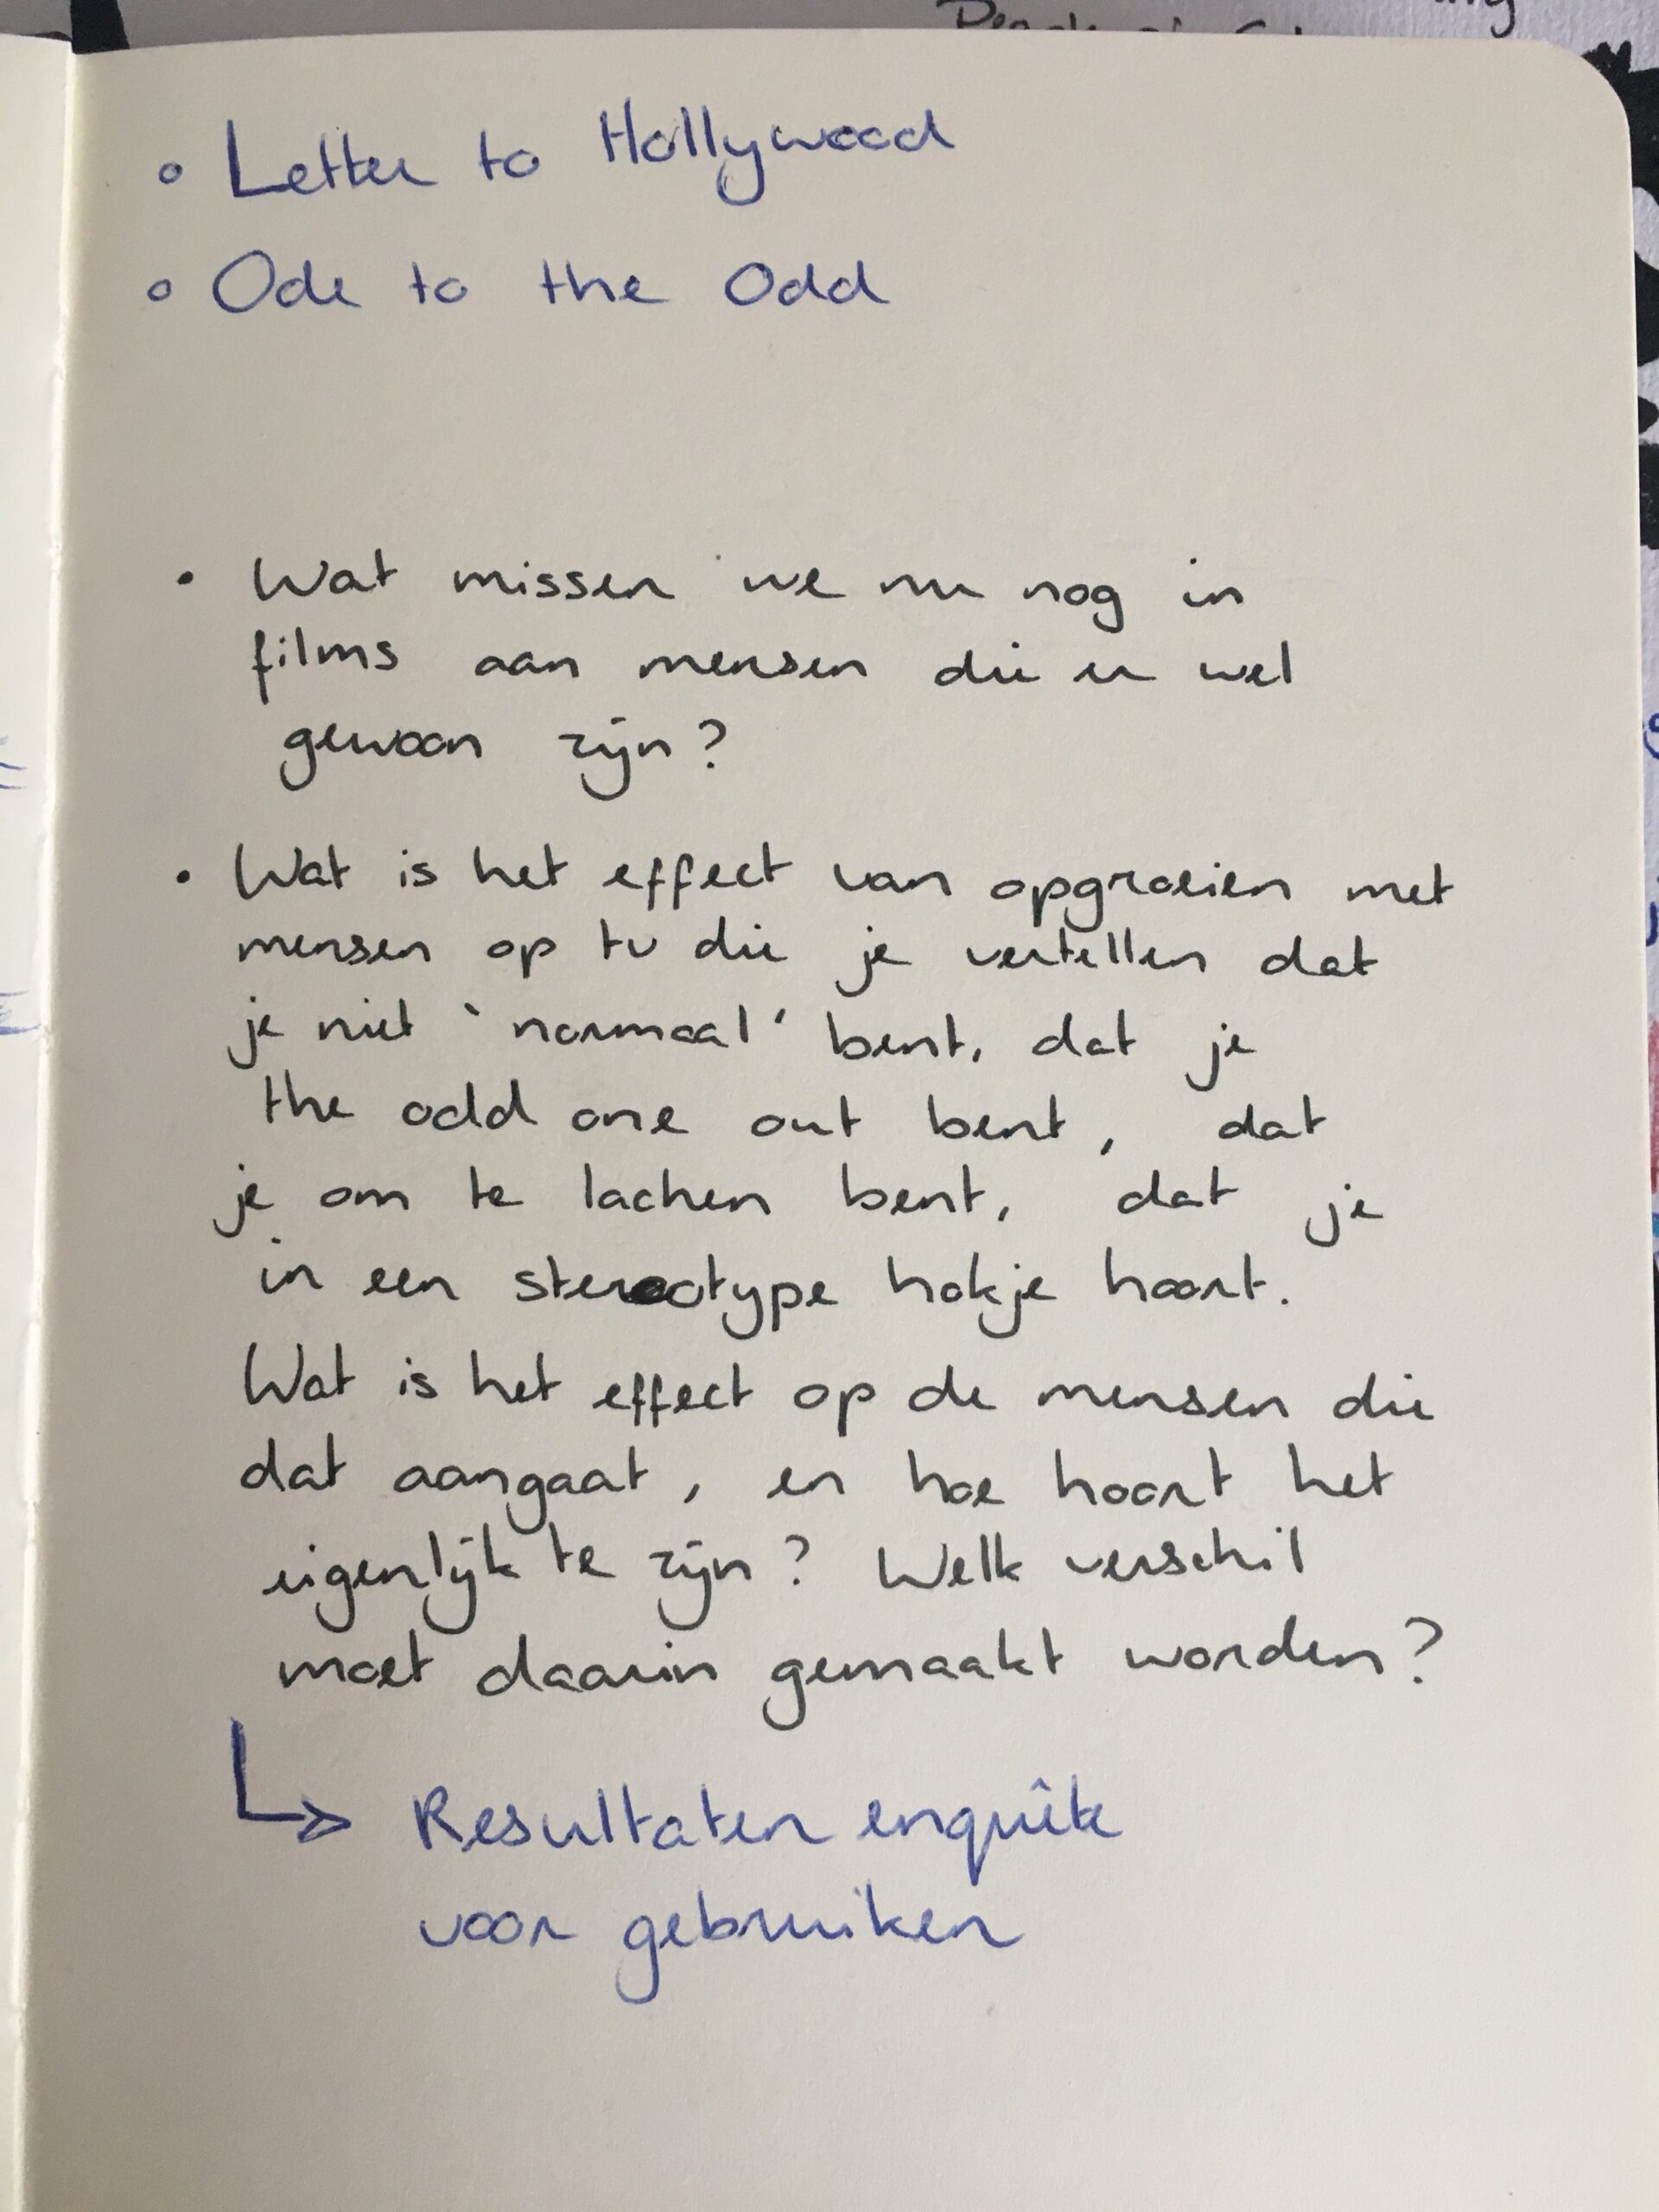 ◦ Letter to Hollywood
◦ Ode to the Odd
• Wat missen we nu nog in
films aan mensen die er wel
gewoon zijn?
• Wat is het effect van opgroeien met
mensen op tv die je vertellen dat
je niet 'normaal' bent, dat je
the odd one out bent, dat
je om te lachen bent, dat je
in een stereotype hokje hoort.
Wat is het effect op de mensen die
dat aangaat, en hoe hoort het
eigenlijk te zijn? Welk verschil
moet daarin gemaakt worden?
↳ Resultaten enquête
voor gebruiken